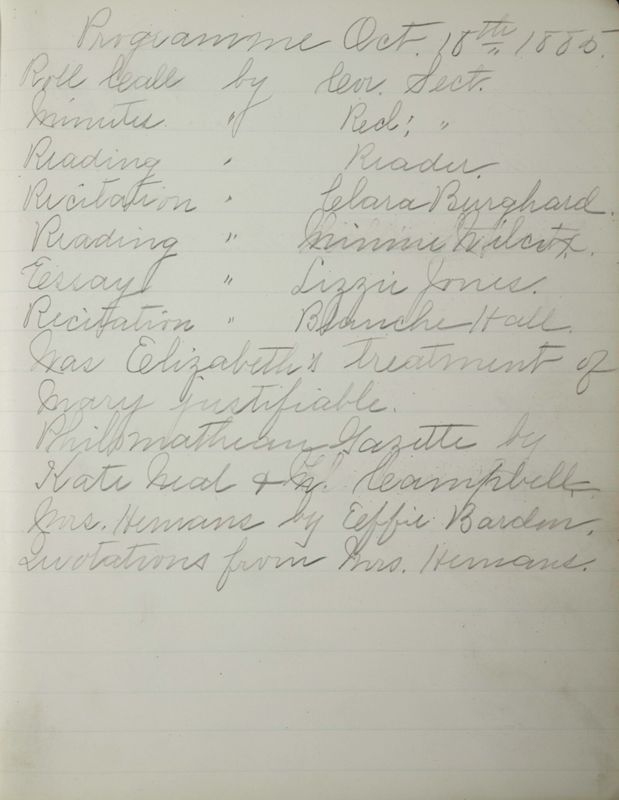 Programme Oct. 18th 1885.
Roll Call by Cor. Sect.
Minutes " Rec; "
Reading " Reader.
Recitation " Clara Burghard.
Reading " Minnie Wilcox.
Essay " Lizzie Jones.
Recitation " Blanche Hall.
Was Elizabeth's treatment of
Mary justifiable.
Philomathean Gazette by
Kate Neal & Campbell
Mrs. Hemans by Effie Bardon.
Quotations from Mrs. Hemans.